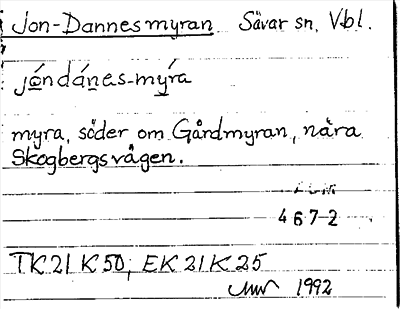 Jon-Dannesmyran Sävar sn, Vbl.
jóndánes-mýra
myra, söder om Gårdmyran, nära
Skogbergsvägen.
4672
TK 21 K 50, EK 21 K 25
1992